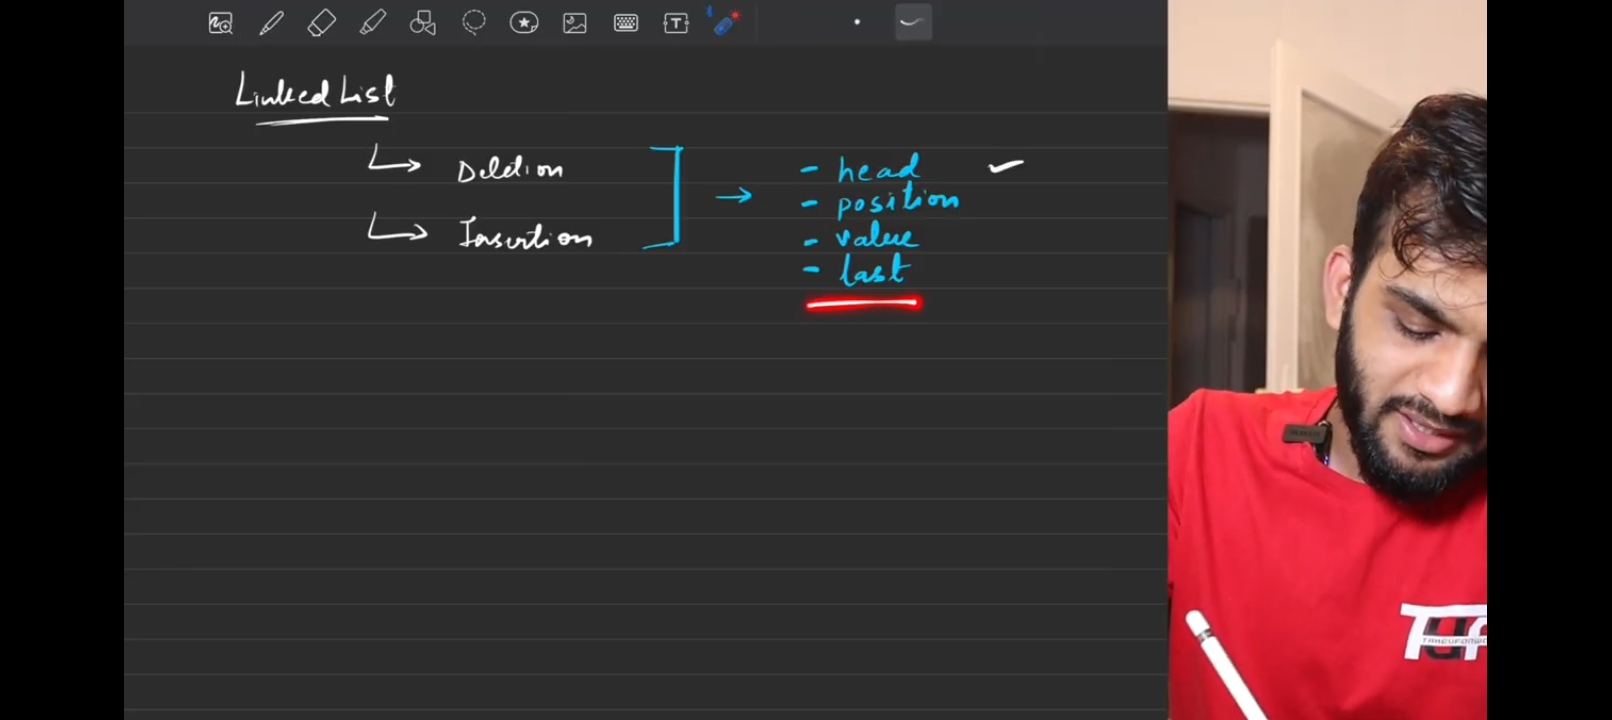 Linked List
Deletion
Insertion
- head
- position
- value
- last
T
TUF